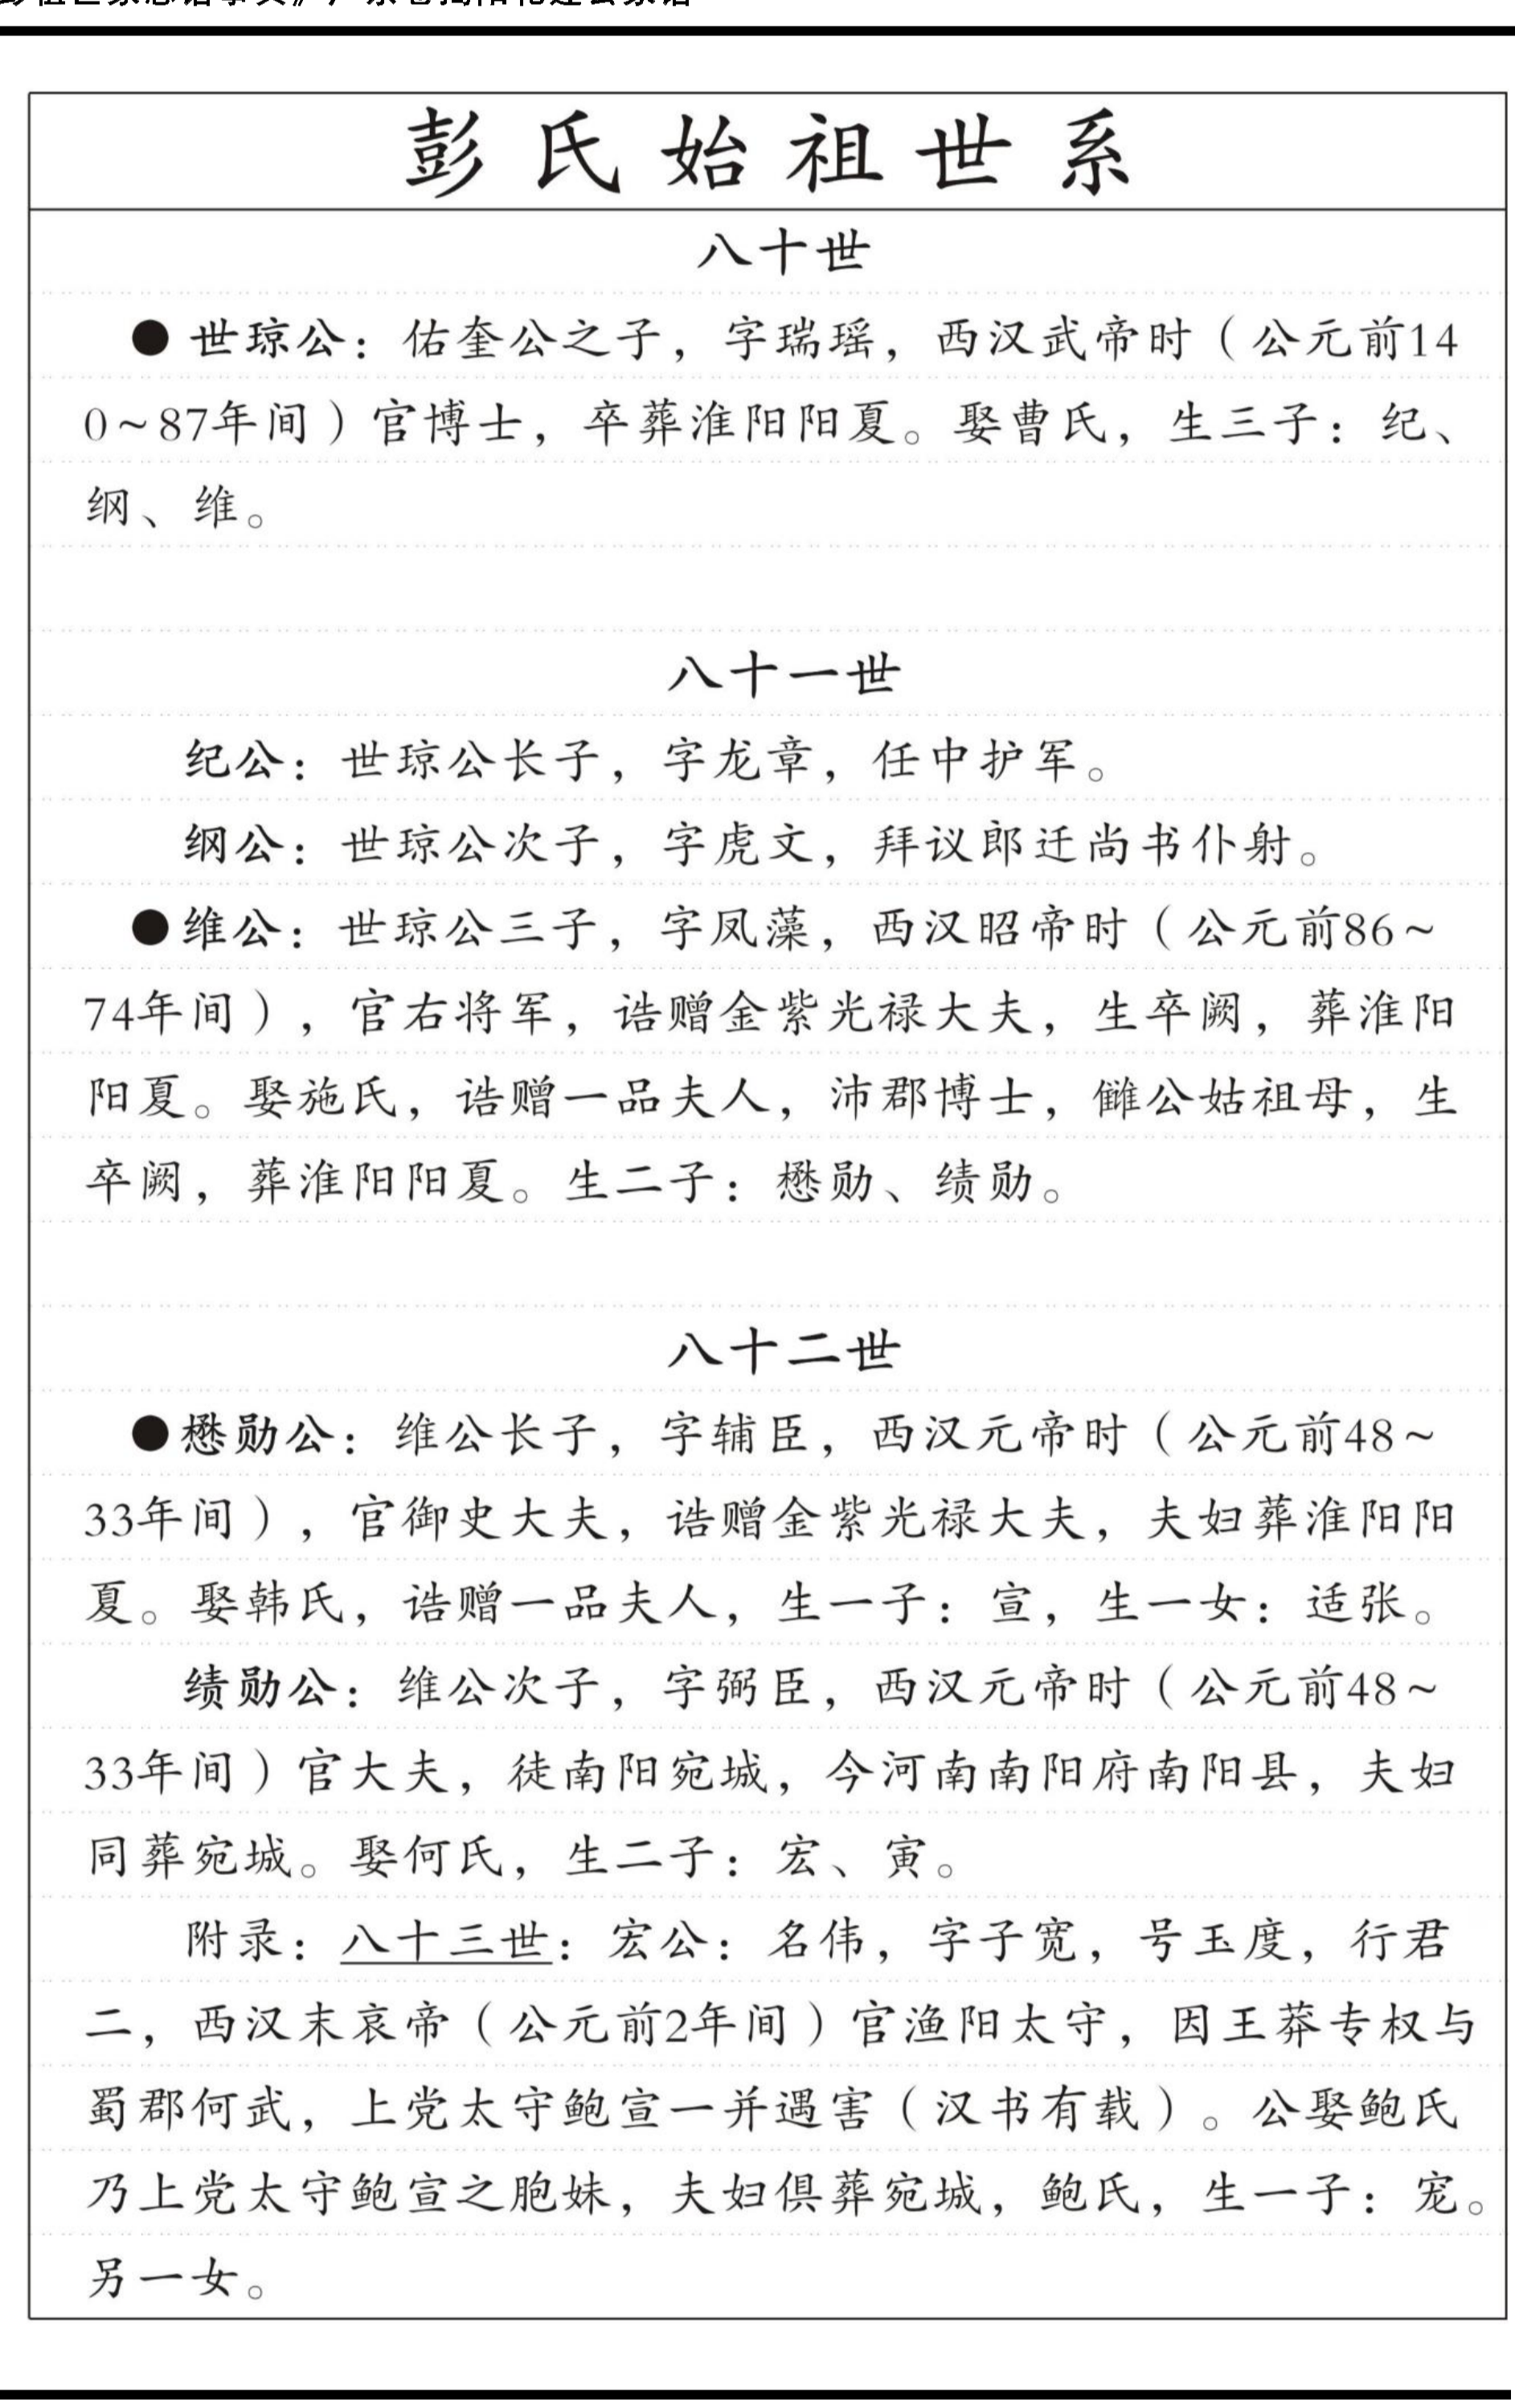 彭氏始祖世系
八十世
● 世琼公：佑奎公之子，字瑞瑶，西汉武帝时（公元前14
0～87年间）官博士，卒葬淮阳阳夏。娶曹氏，生三子：纪、
纲、维。
八十一世
纪公：世琼公长子，字龙章，任中护军。
纲公：世琼公次子，字虎文，拜议郎迁尚书仆射。
●维公：世琼公三子，字凤藻，西汉昭帝时（公元前86～
74年间），官右将军，诰赠金紫光禄大夫，生卒阙，葬淮阳
阳夏。娶施氏，诰赠一品夫人，沛郡博士，雠公姑祖母，生
卒阙，葬淮阳阳夏。生二子：懋勋、绩勋。
八十二世
●懋勋公：维公长子，字辅臣，西汉元帝时（公元前48～
33年间），官御史大夫，诰赠金紫光禄大夫，夫妇葬淮阳阳
夏。娶韩氏，诰赠一品夫人，生一子：宣，生一女：适张。
绩勋公：维公次子，字弼臣，西汉元帝时（公元前48～
33年间）官大夫，徒南阳宛城，今河南南阳府南阳县，夫妇
同葬宛城。娶何氏，生二子：宏、寅。
附录：八十三世：宏公：名伟，字子宽，号玉度，行君
二，西汉末哀帝（公元前2年间）官渔阳太守，因王莽专权与
蜀郡何武，上党太守鲍宣一并遇害（汉书有载）。公娶鲍氏
乃上党太守鲍宣之胞妹，夫妇俱葬宛城，鲍氏，生一子：宠。
另一女。